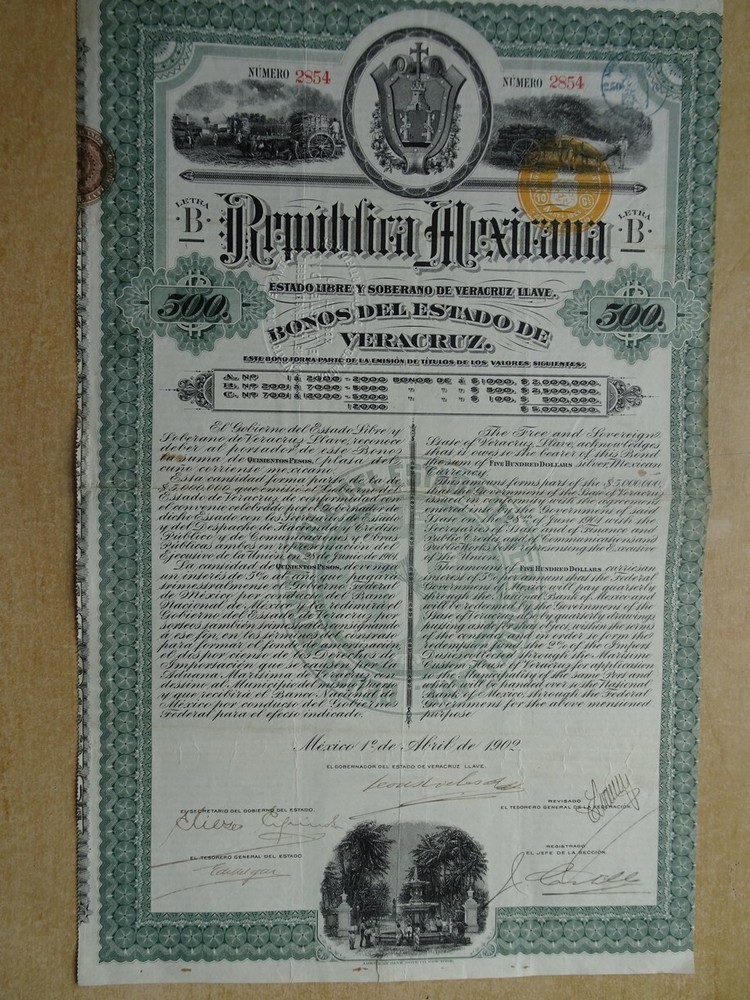 NÚMERO 2854
NÚMERO 2854
LETRA
B
República Mexicana
LETRA
B
ESTADO LIBRE Y SOBERANO DE VERACRUZ LLAVE.
500.
BONOS DEL ESTADO DE
VERACRUZ.
500.
ESTE BONO FORMA PARTE DE LA EMISIÓN DE TÍTULOS DE LOS VALORES SIGUIENTES:
A. Nº 1 á 2000 - 2000 BONOS DE á $1000, $2,000,000.
B. Nº 2001 á 7000 - 5000 " " " $ 500, $2,500,000.
C. Nº 7001 á 12000 - 5000 " " " $ 100, $ 500,000.
12000 $5,000,000.
El Gobierno del Estado Libre y
Soberano de Veracruz Llave, reconoce
deber al portador de este Bono
la suma de QUINIENTOS PESOS, plata del
cuño corriente mexicano.
Esta cantidad forma parte de la de
$5,000,000, que emitió el Gobierno del
Estado de Veracruz de conformidad con
el convenio celebrado por el Gobernador de
dicho Estado con los Secretarios de Estado
y del Despacho de Hacienda y Crédito
Público y de Comunicaciones y Obras
Públicas ambos en representación del
Ejecutivo de la Unión, en 28 de Junio de 1901.
La cantidad de QUINIENTOS PESOS, devenga
un interés de 5% al año que pagará
trimestralmente el Gobierno Federal
de México por conducto del Banco
Nacional de México y la redimirá el
Gobierno del Estado de Veracruz por
sorteos también trimestrales consignando
á ese fin, en los términos del contrato
para formar el fondo de amortización
el dos por ciento de los Derechos de
Importación que se causen por la
Aduana Marítima de Veracruz con
destino al Municipio del mismo Puerto
y que recibirá el Banco Nacional de
México por conducto del Gobierno
Federal para el efecto indicado.
The Free and Sovereign
State of Veracruz Llave, acknowledges
that it owes to the bearer of this Bond
the sum of FIVE HUNDRED DOLLARS silver, Mexican
Currency.
This amount forms part of the $5,000,000,
that the Government of the State of Veracruz
issued in conformity with an agreement
entered into by the Government of said
State on the 28th of June 1901 with the
Secretaries of State and of Finance and
Public Credit and of Communications and
Public Works both representing the Executive
of the Union.
The amount of FIVE HUNDRED DOLLARS carries an
interest of 5% per annum that the Federal
Government of Mexico will pay quarterly
through the National Bank of Mexico and
will be redeemed by the Government of the
State of Veracruz also by quarterly drawings
setting aside for that purpose, under the terms
of the contract and in order to form the
redemption fund the 2% of the Import
Duties collected through the Maritime
Custom House of Veracruz for application
to the Municipality of the same Port and
which will be handed over to the National
Bank of Mexico, through the Federal
Government for the above mentioned
purpose
México 1º de Abril de 1902.
EL GOBERNADOR DEL ESTADO DE VERACRUZ LLAVE.
EL SECRETARIO DEL GOBIERNO DEL ESTADO.
REVISADO
EL TESORERO GENERAL DE LA FEDERACIÓN
EL TESORERO GENERAL DEL ESTADO
REGISTRADO
EL JEFE DE LA SECCIÓN.